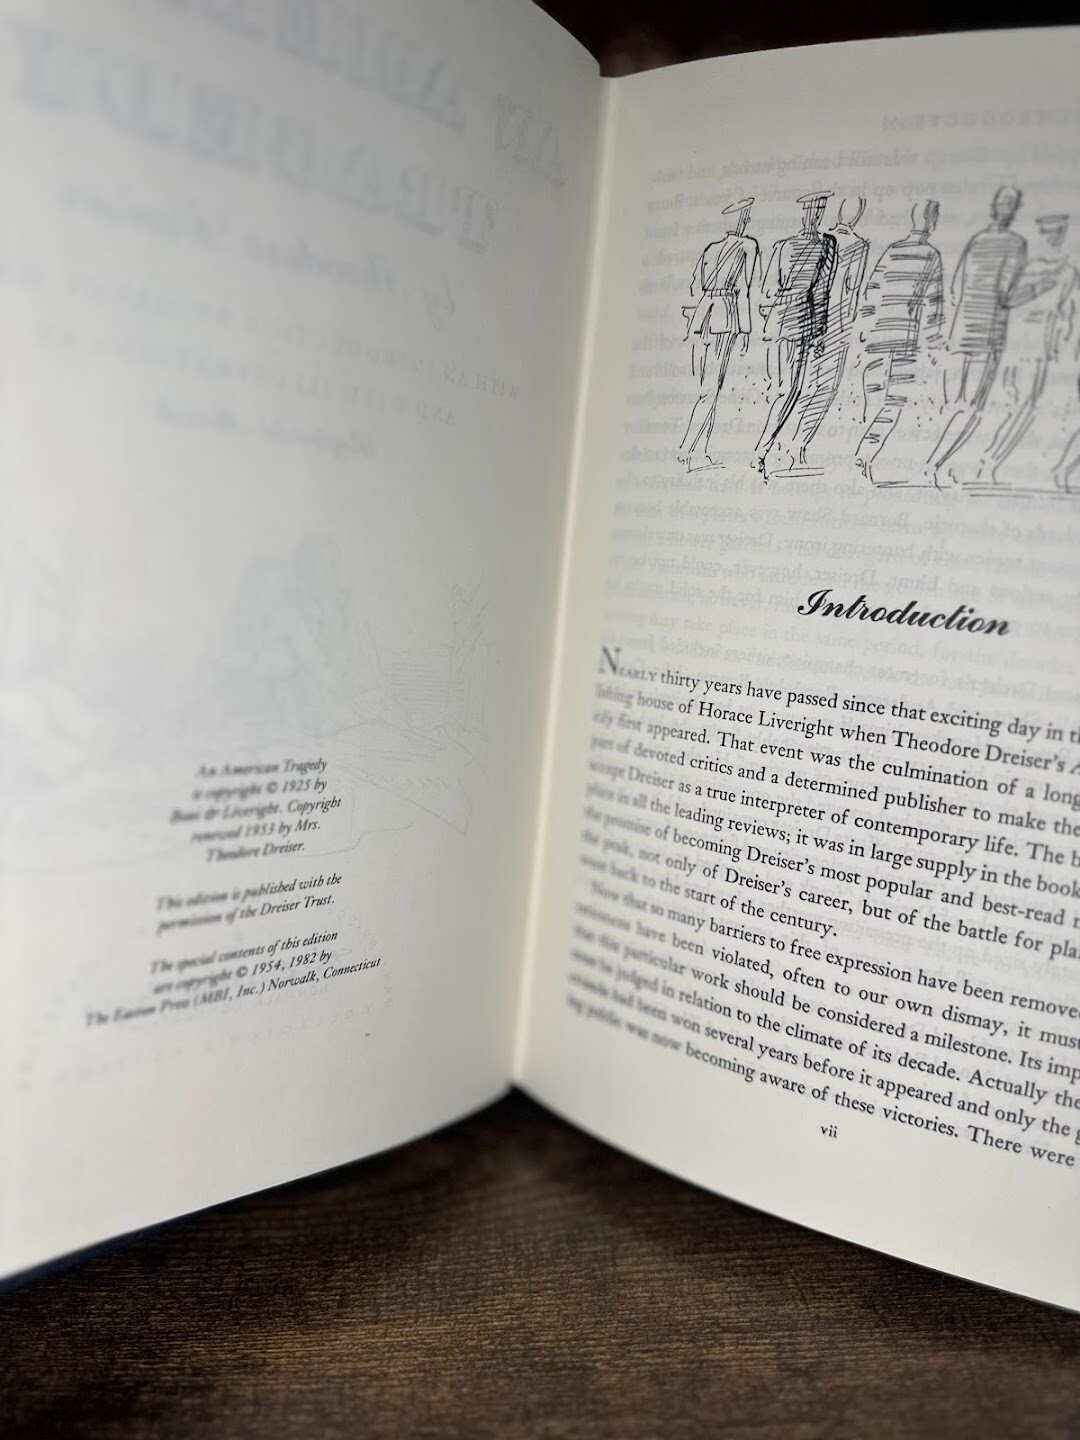 An American Tragedy
is copyright © 1925 by
Boni & Liveright. Copyright
renewed 1953 by Mrs.
Theodore Dreiser.
This edition is published with the
permission of the Dreiser Trust.
The special contents of this edition
are copyright © 1954, 1982 by
The Easton Press (MBI, Inc.) Norwalk, Connecticut
Introduction
NEARLY thirty years have passed since that exciting day in
lishing house of Horace Liveright when Theodore Dreiser's
edy first appeared. That event was the culmination of a long
part of devoted critics and a determined publisher to make the
accept Dreiser as a true interpreter of contemporary life. The
place in all the leading reviews; it was in large supply in the book
the promise of becoming Dreiser's most popular and best-read
the peak, not only of Dreiser's career, but of the battle for
went back to the start of the century.
Now that so many barriers to free expression have been removed
have been violated, often to our own dismay, it
that this particular work should be considered a milestone. Its
must be judged in relation to the climate of its decade. Actually the
had been won several years before it appeared and only the
ing public was now becoming aware of these victories. There were
vii